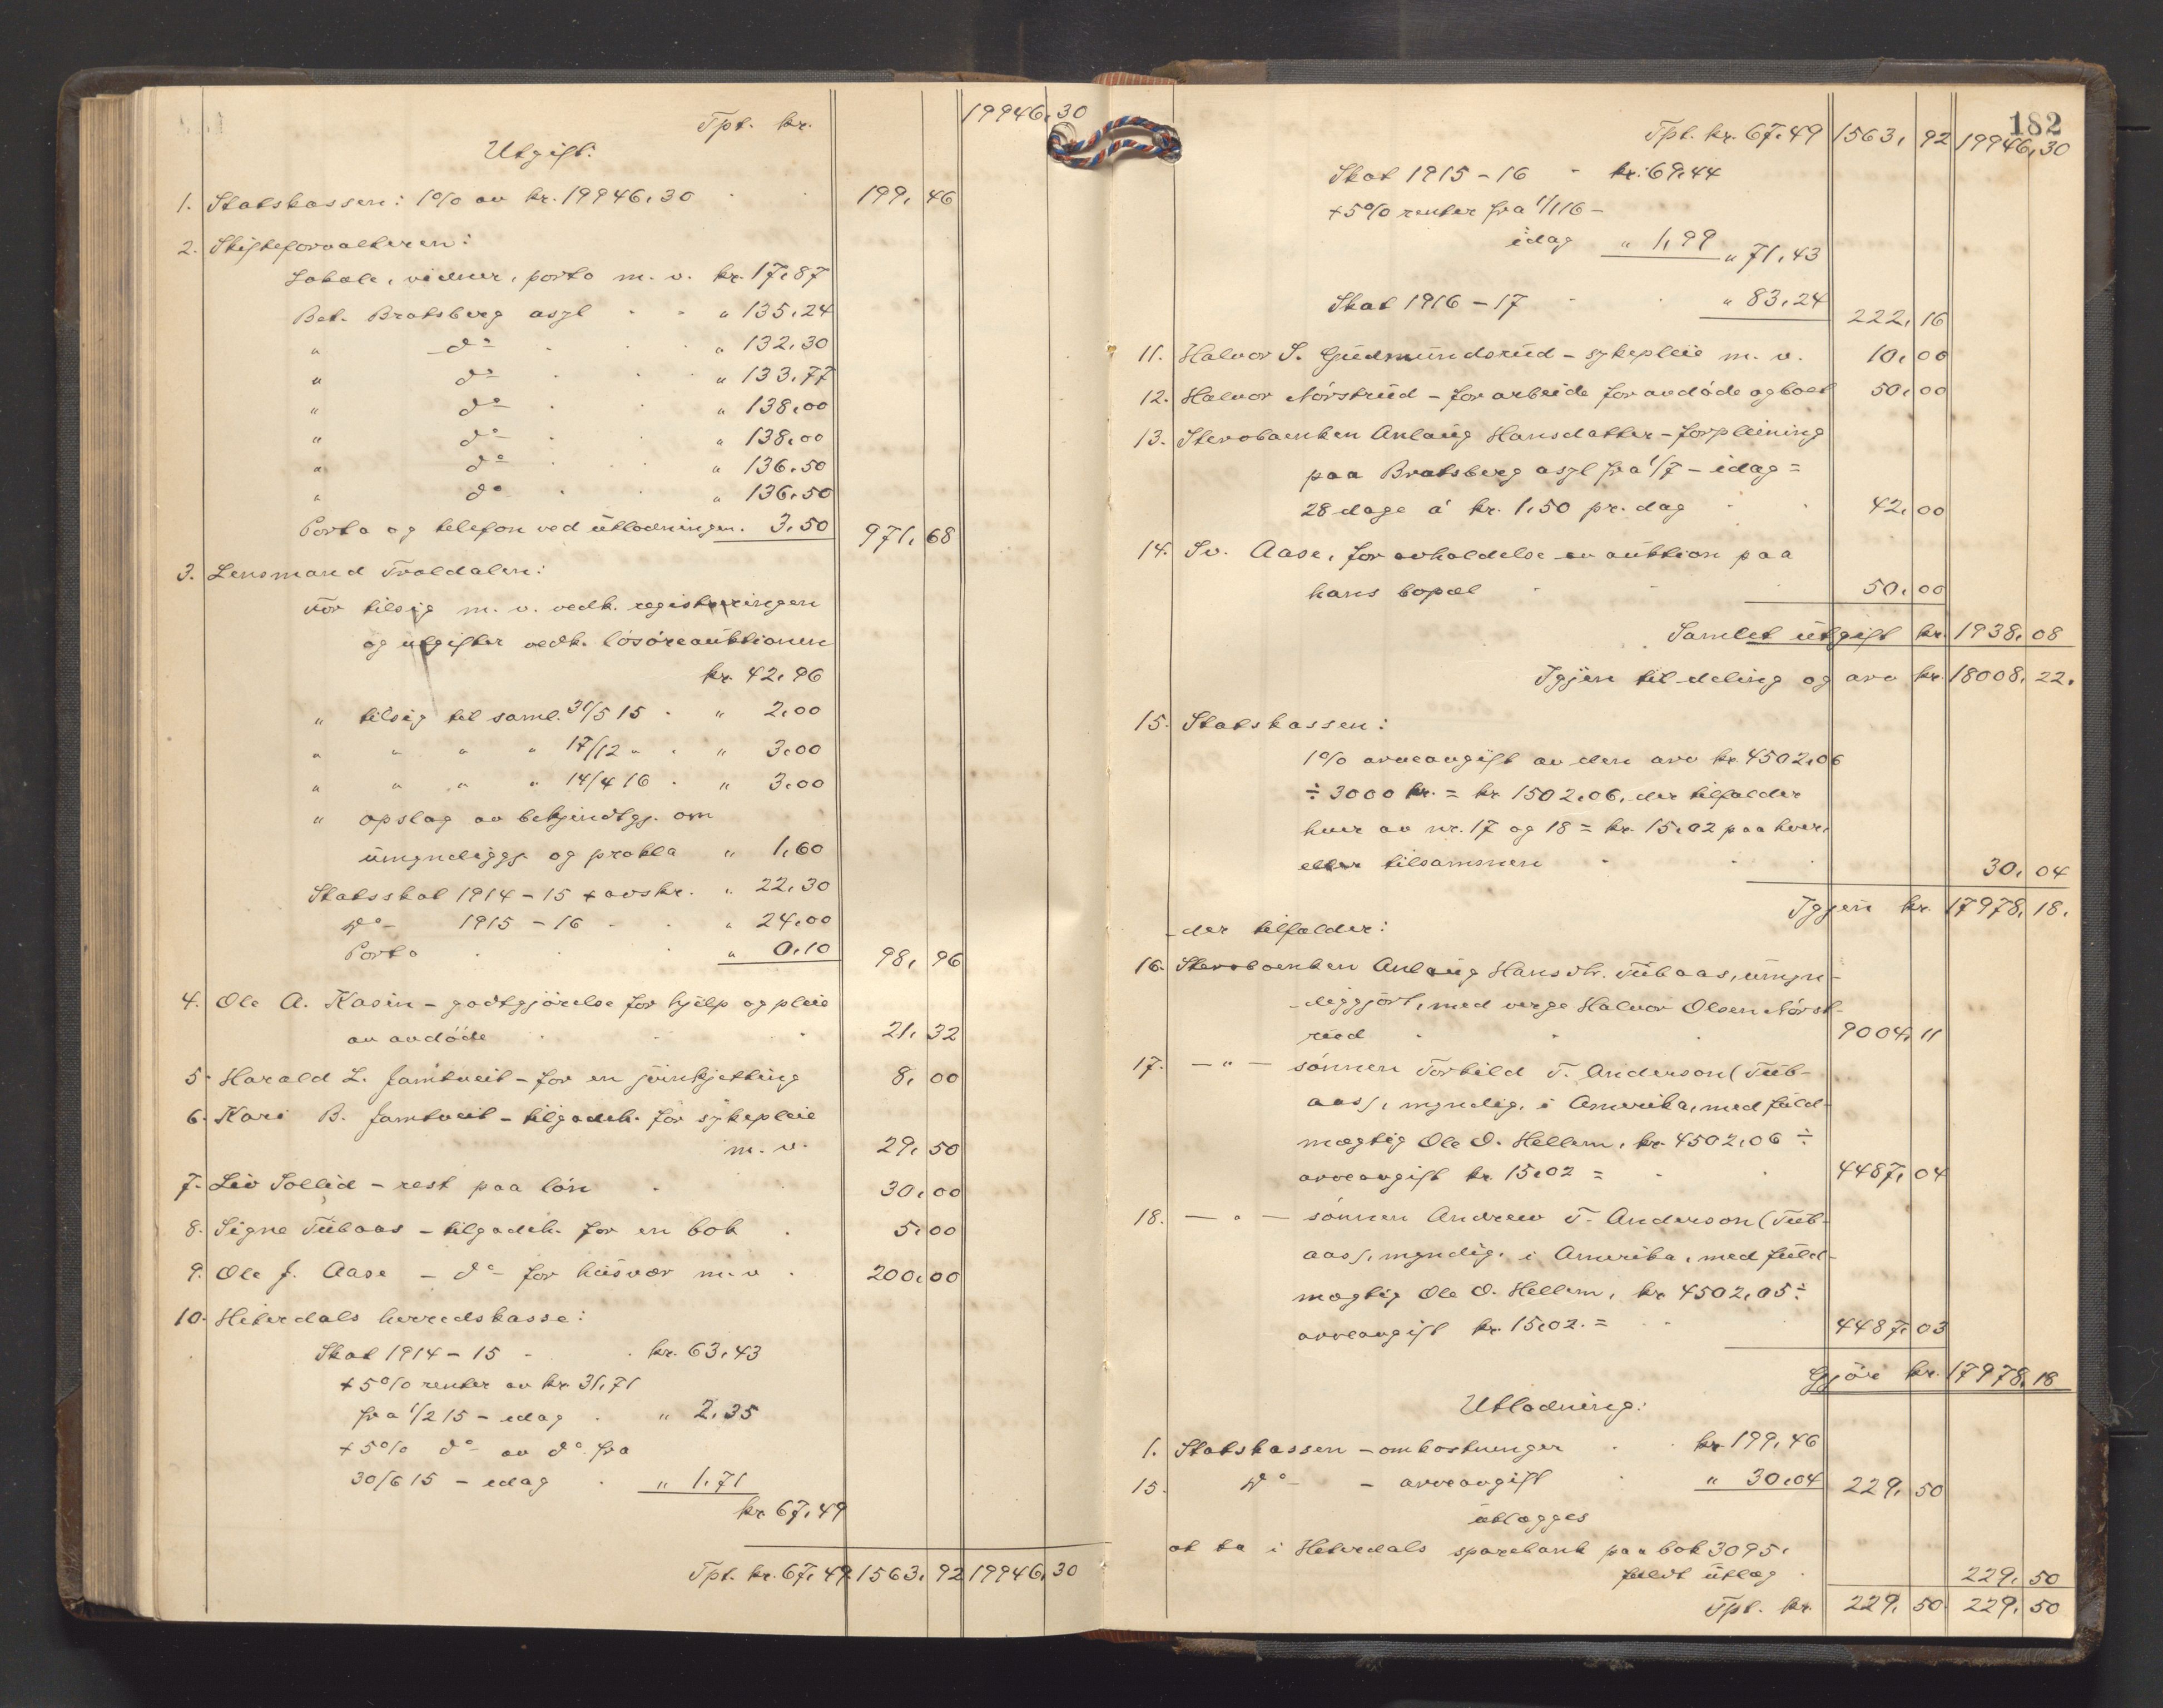 Tpt. kr. 19946,30
Utgift:
1. Statskassen: 1% av kr. 19946,30 199,46
2. Skifteforvalteren:
Lokale, vidner, porto m. v. kr. 17,87
Bet. Bratsberg asyl " 135,24
" do " 132,30
" do " 133,77
" do " 138,00
" do " 138,00
" do " 136,50
" do " 136,50
Porto og telefon ved utlodningen. 3,50 971,68
3. Lensmand Troldalen:
For tilsig m. v. vedk. registreringen
og utgifter vedk. lösöreauktionen
kr. 42,96
" tilsig til saml. 31/5 15 " 2,00
" " " " 17/12 " " 3,00
" " " " 14/4 16 " 3,00
" opslag av bekjendtgj. om
umyndiggj. og prokla " 1,60
Statsskat 1914-15 + avskr. " 22,30
do 1915-16 " 24,00
Porto " 0,10 98,96
4. Ole A. Kasin - godtgjörelse for hjelp og pleie
av avdöde 21,32
5. Harald L. Jamtveit - for en jernkjetting 8,00
6. Kari B. Jamtveit - tilgodeh. for sykepleie
m. v. 29,50
7. Liv Sollid - rest paa lön 30,00
8. Signe Tubaas - tilgodeh. for en bok 5,00
9. Ole J. Aase - do for husvær m. v. 200,00
10. Hiterdals herredskasse:
Skat 1914-15 kr. 63,43
+ 5% renter av kr. 31,71
fra 1/2 15 - idag " 2,35
+ 5% do av do fra
30/6 15 - idag " 1,71
kr. 67,49
Tpt. kr. 67,49 1563,92 19946,30
182
Tpt. kr. 67,49 1563,92 19946,30
Skat 1915-16 kr. 69,44
+ 5% renter fra 1/1 16 -
idag " 1,99 " 71,43
Skat 1916-17 " 83,24 222,16
11. Halvor S. Gudmundsrud - sykepleie m. v. 10,00
12. Halvor Nörstrud - for arbeide for avdöde og boet 50,00
13. Stervboenken Anlaug Hansdatter - forpleining
paa Bratsberg asyl fra 1/7 - idag =
28 dage á kr. 1,50 pr. dag 42,00
14. Sv. Aase, for avholdelse av auktion paa
hans bopæl 50,00
Samlet utgift kr. 1938,08
Igjen til deling og arv kr. 18008,22.
15. Statskassen:
1% arveavgift av den arv kr. 4502,06
÷ 3000 kr. = kr. 1502,06, der tilfalder
hver av nr. 17 og 18 = kr. 15,02 paa hver,
eller tilsammen 30,04
Igjen kr. 17978,18.
der tilfalder:
16. Stervboenken Anlaug Hansdtr. Tubaas, umyn-
diggjort, med verge Halvor Olsen Nörst-
rud 9004,11
17. - " - sönnen Torkild T. Anderson (Tub-
aas), myndig, i Amerika, med fuld-
mægtig Ole O. Hellem, kr. 4502,06 ÷
arveavgift kr. 15,02 = 4487,04
18. - " - sönnen Andrew T. Anderson (Tub-
aas), myndig, i Amerika, med fuld-
mægtig Ole O. Hellem, kr. 4502,05 ÷
arveavgift kr. 15,02. = 4487,03
Gjör kr. 17978,18
Utlodning:
1. Statskassen - omkostninger kr. 199,46
15. do - arveavgift " 30,04 229,50
utlægges
at ta i Hiterdals sparebank paa bok 3095,
fuldt utlæg 229,50
Tpt. kr. 229,50 229,50